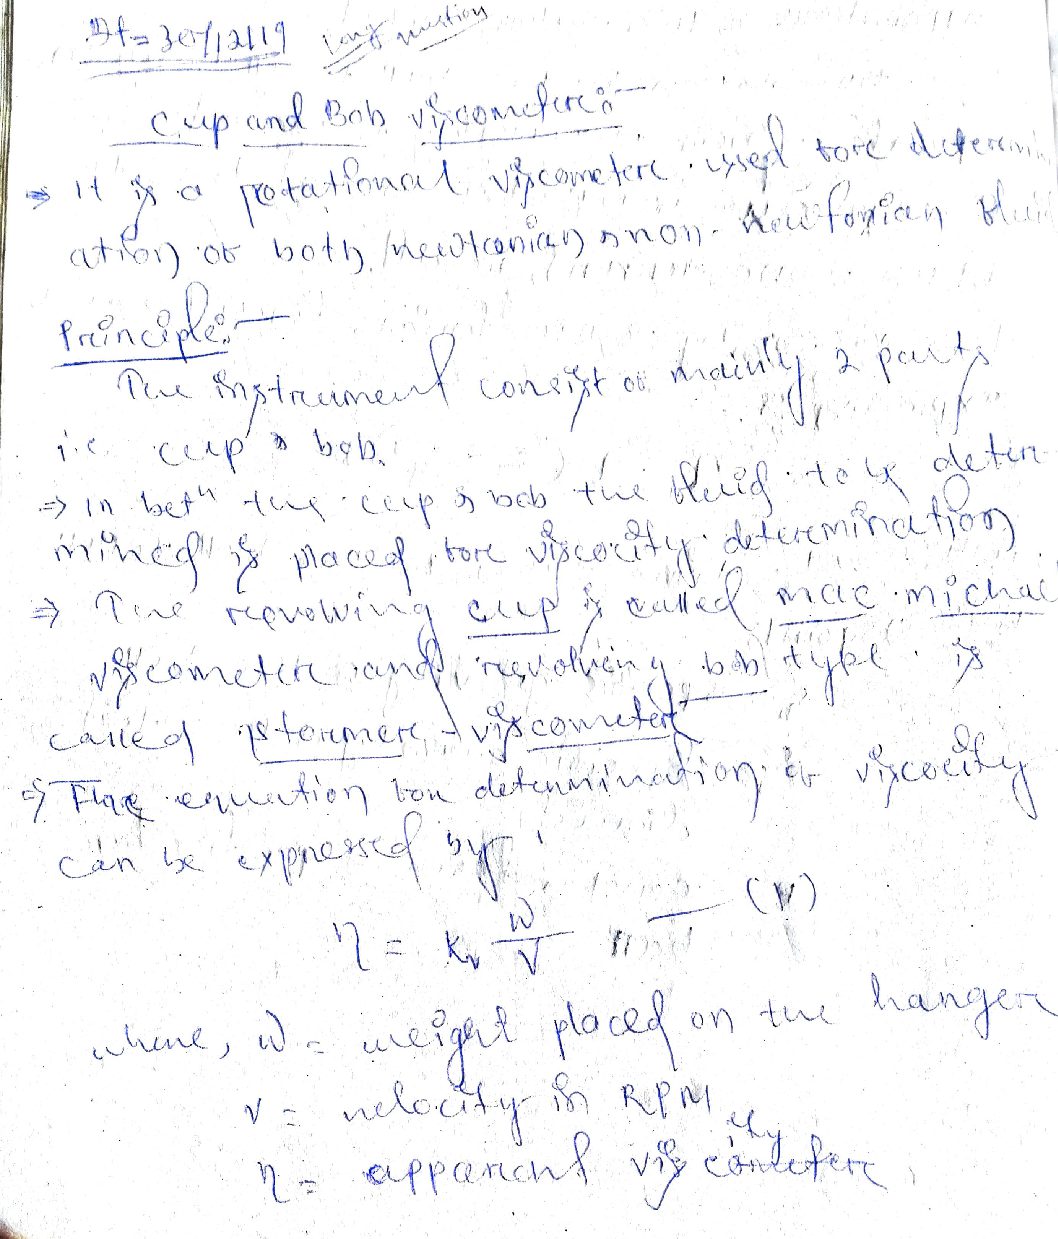 Dt = 30/12/19 Long question
Cup and Bob viscometere:-
⇒ It is a rotational viscometere used fore determin
ation of both newtonian & non-Newtonian flui
Principle:-
The instrument consist of mainly 2 parts
i.e cup & bob.
⇒ In betn the cup & bob the fluid to be deter
mined is placed fore viscocity determination
⇒ The revolving cup is called mac michael
viscometere and revolving bob type is
called stormere viscometere
⇒ The equation for determination of viscocity
can be expressed by
η = Kv w/v — (V)
where, w = weight placed on the hangere
v = velocity in RPM
η = apparent viscometere ity